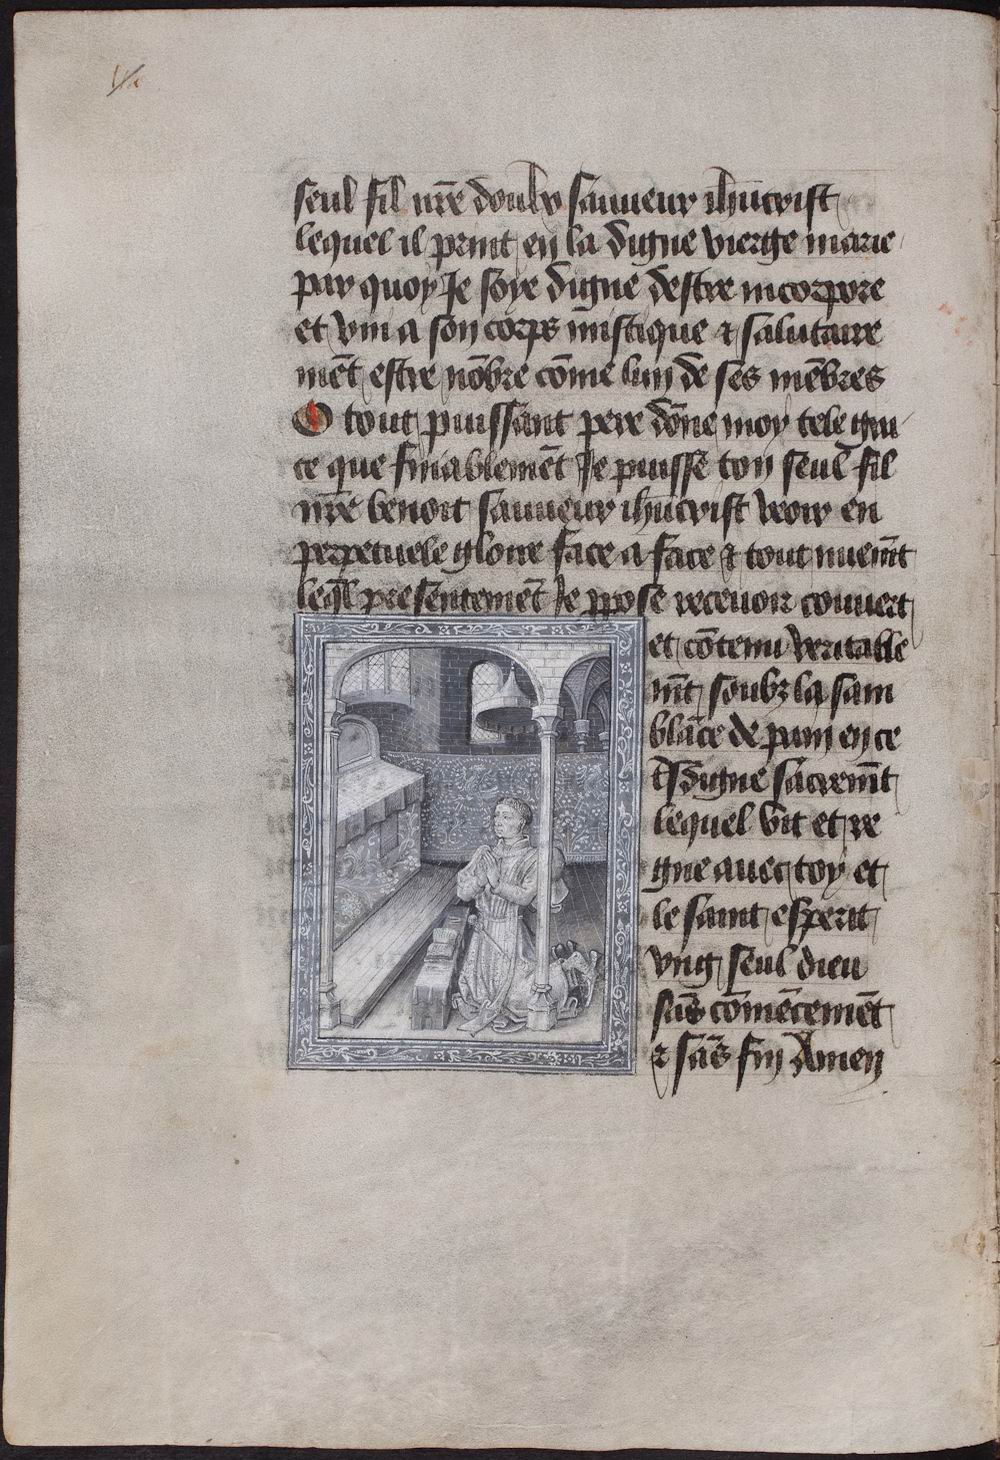 seul fil nr̄e doulx sauueur ihūcrist
lequel il print en la digne vierge marie
par quoy Je soye digne destre incorpore
et vni a son corps mistique ⁊ salutaire
mēt estre nōbre cōme lun de ses mēbres
O tout puissant pere dōne moy tele gra
ce que finablemēt Je puisse ton seul fil
nr̄e benoit sauueur ihūcrist veoir en
perpetuele gloire face a face ⁊ tout nuem̄t
leq̄l presentemēt Je ppose receuoir couuert
et cōtenu veritable
m̄t soubz la sam
blāce de pain en ce
tsdigne sacrem̄t
lequel vit et re
gne auec toy et
le saint esperit
vng seul dieu
sās cōmēcemēt
⁊ sās fin Amen